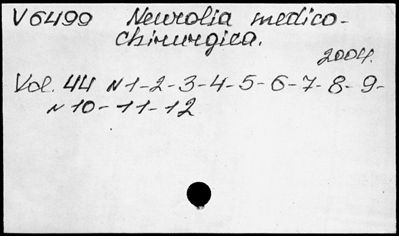 V6499 Neurolia medico-
chirurgica.
2004.
Vol. 44 N1-2-3-4-5-6-7-8-9-
N10-11-12